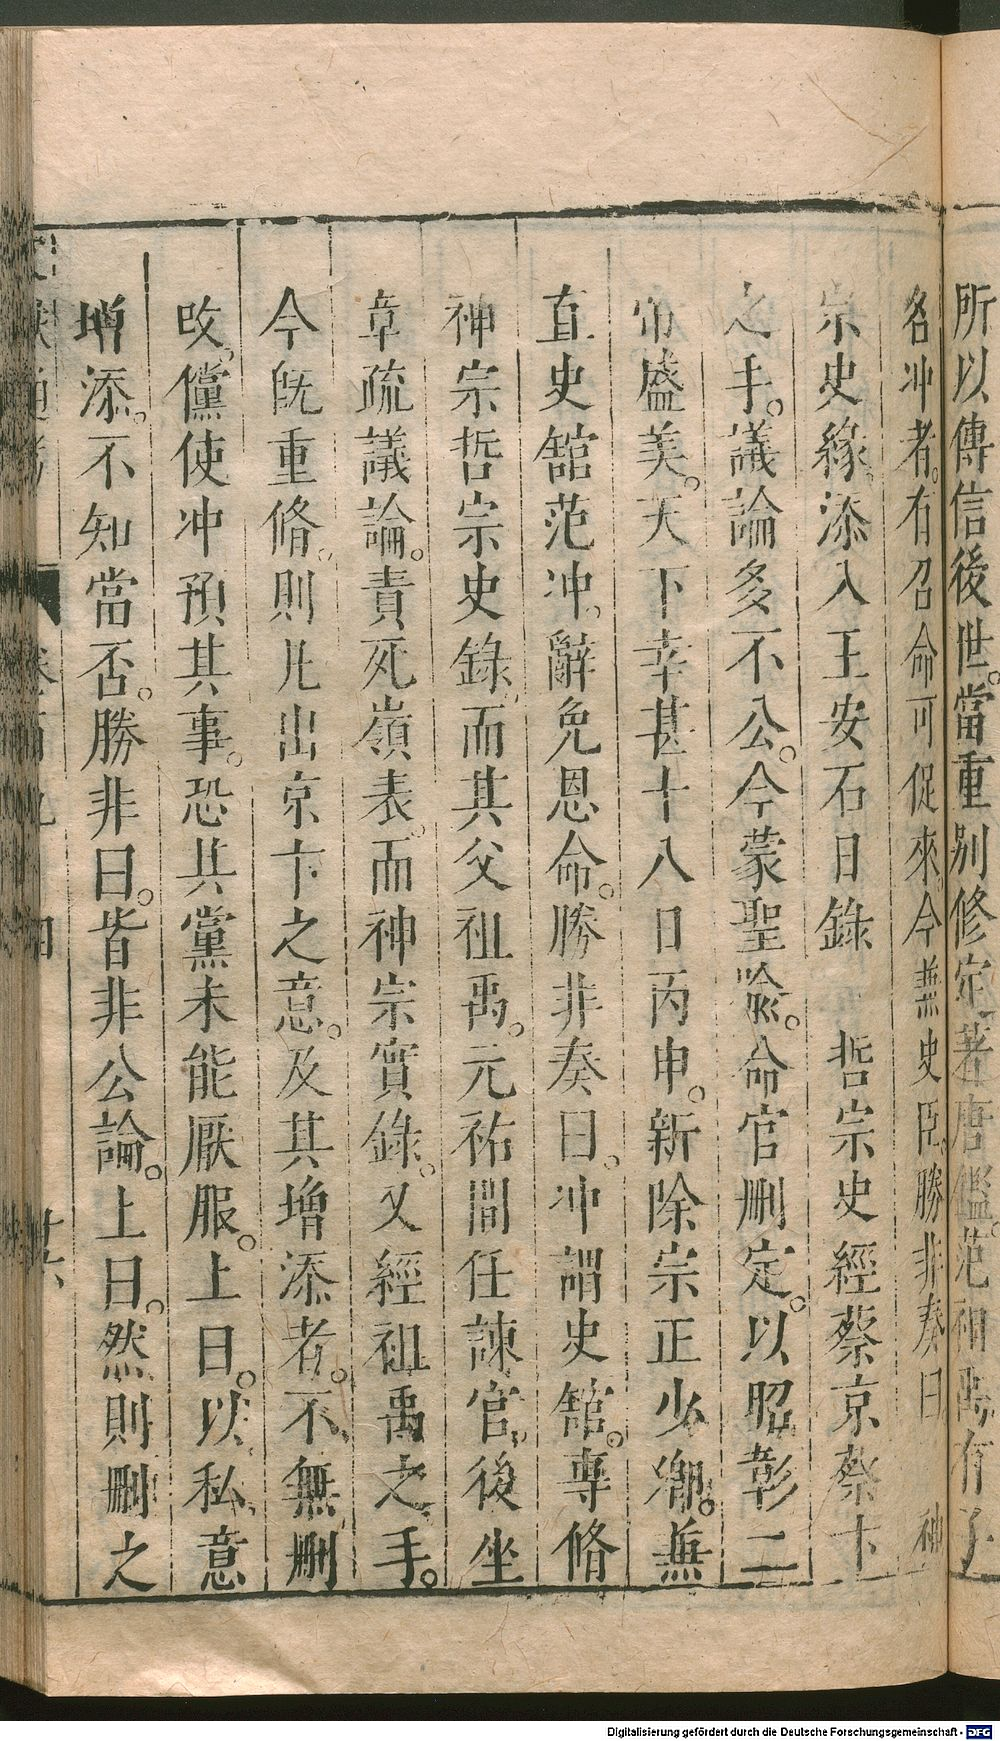 所以傳信後世。當重別修定。著唐鑑范祖禹有子
名冲者。有召命可促來。今兼史臣。勝非奏曰神
宗史緣添入王安石日錄 哲宗史經蔡京蔡卞
之手。議論多不公。今蒙聖喩。命官刪定。以昭彰二
帝盛美。天下幸甚十八日丙申。新除宗正少卿。兼
直史舘范冲。辭免恩命。勝非奏曰。冲謂史舘。專脩
神宗哲宗史錄而其父祖禹。元祐間任諫官。後坐
章疏議論。責死嶺表。而神宗實錄。又經祖禹之手。
今旣重脩。則凡出京卞之意。及其增添者。不無刪
改。儻使冲預其事。恐其黨未能厭服。上曰。以私意
增添。不知當否。勝非曰。皆非公論。上曰。然則刪之
Digitalisierung gefördert durch die Deutsche Forschungsgemeinschaft - DFG